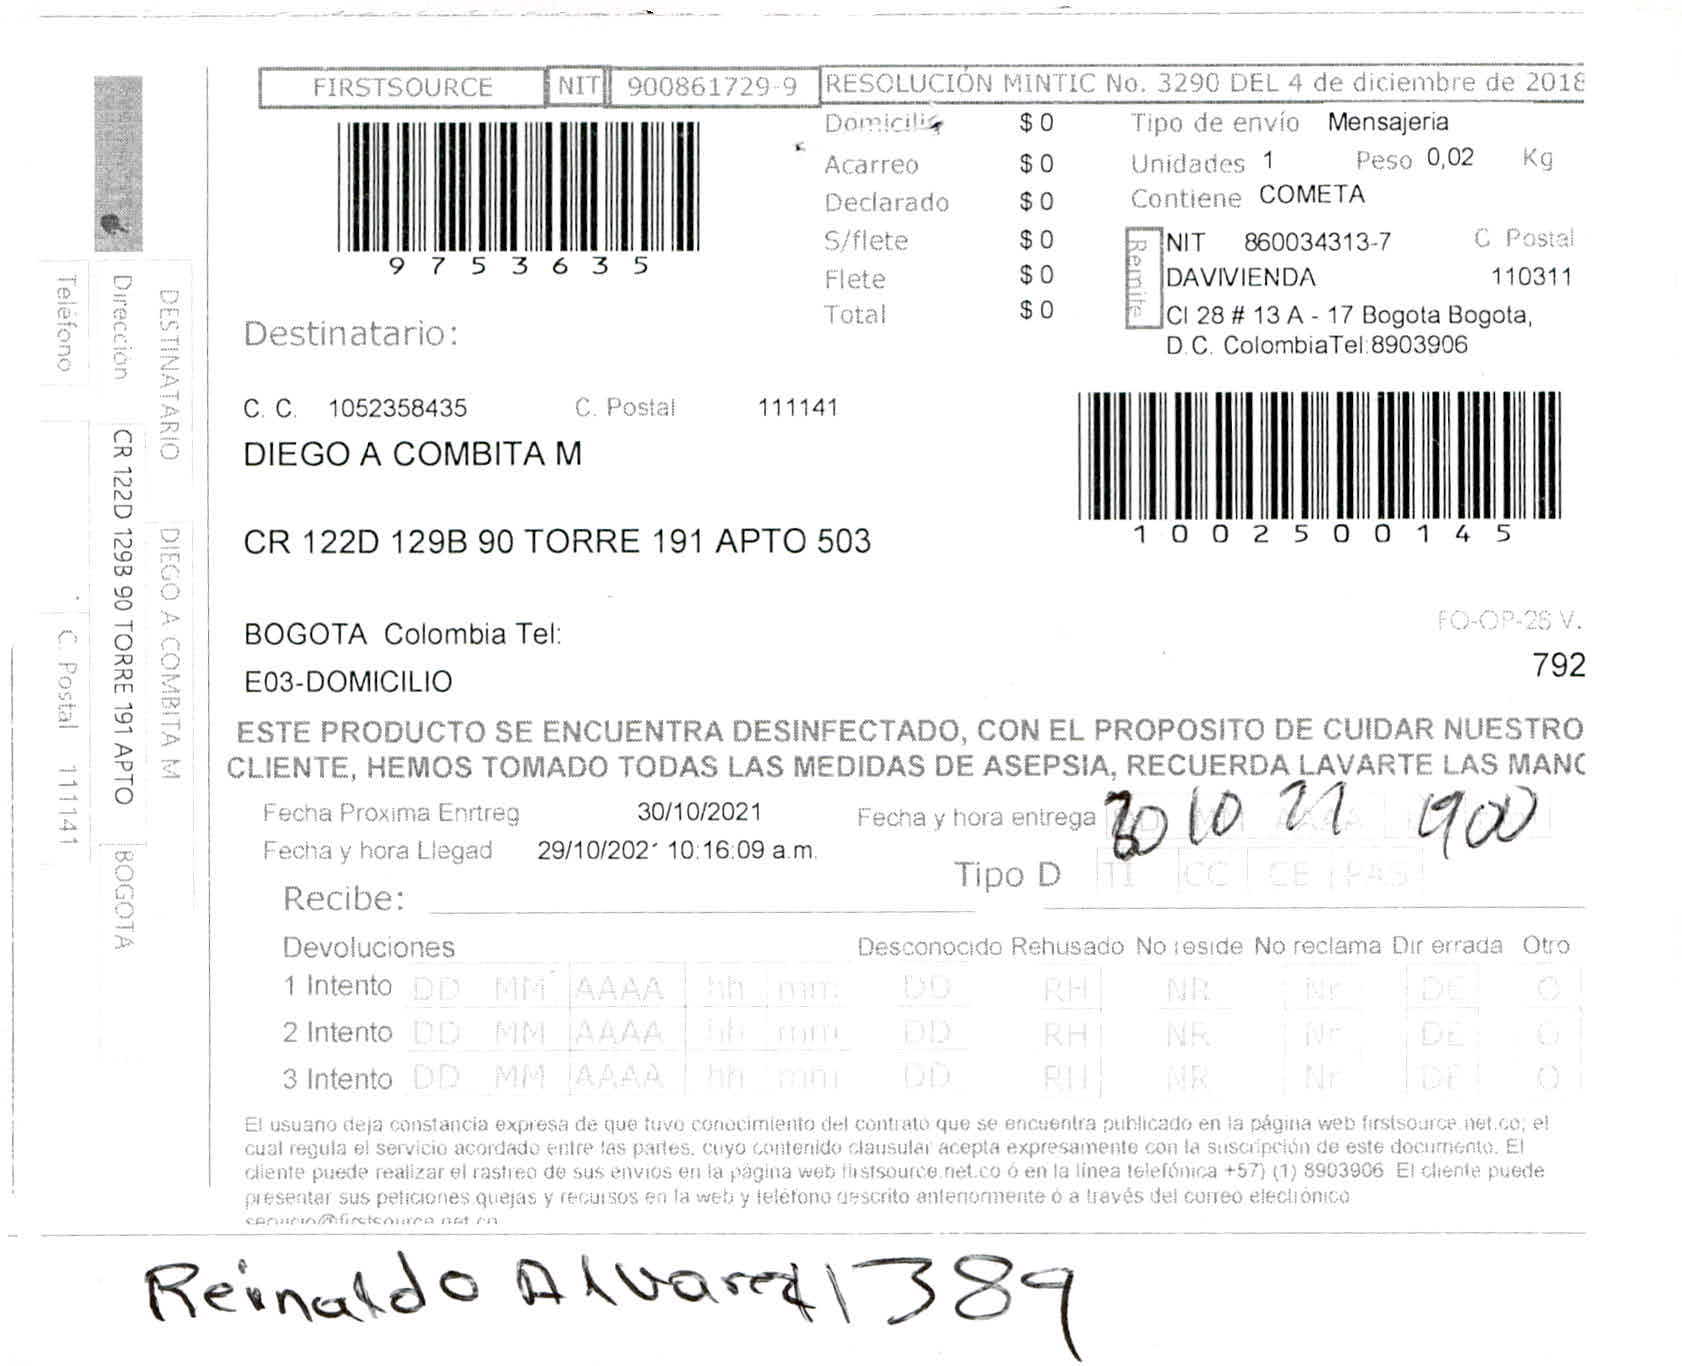 FIRSTSOURCE NIT 900861729-9 RESOLUCIÓN MINTIC No. 3290 DEL 4 de diciembre de 2018
9753635
Domicilio $ 0
Acarreo $ 0
Declarado $ 0
S/flete $ 0
Flete $ 0
Total $ 0
Tipo de envío Mensajeria
Unidades 1 Peso 0,02 Kg
Contiene COMETA
Remite
NIT 860034313-7 C Postal
DAVIVIENDA 110311
Cl 28 # 13 A - 17 Bogota Bogota,
D.C. ColombiaTel:8903906
Destinatario:
C. C. 1052358435 C. Postal 111141
DIEGO A COMBITA M
CR 122D 129B 90 TORRE 191 APTO 503
10025000145
BOGOTA Colombia Tel:
E03-DOMICILIO
FO-OP-26 V.
792
ESTE PRODUCTO SE ENCUENTRA DESINFECTADO, CON EL PROPOSITO DE CUIDAR NUESTRO
CLIENTE, HEMOS TOMADO TODAS LAS MEDIDAS DE ASEPSIA, RECUERDA LAVARTE LAS MANO
Fecha Proxima Enrtreg 30/10/2021
Fecha y hora entrega 30 10 21 1900
Fecha y hora Llegad 29/10/2021 10:16:09 a.m.
Tipo D TI CC CE PAS
Recibe:
Devoluciones Desconocido Rehusado No reside No reclama Dir errada Otro
1 Intento DD MM AAAA hh mm DD RH NR Nr DE O
2 Intento DD MM AAAA hh mm DD RH NR Nr DE O
3 Intento DD MM AAAA hh mm DD RH NR Nr DE O
El usuario deja constancia expresa de que tuvo conocimiento del contrato que se encuentra publicado en la página web firstsource.net.co; el
cual regula el servicio acordado entre las partes, cuyo contenido clausular acepta expresamente con la suscripción de este documento. El
cliente puede realizar el rastreo de sus envios en la página web firstsource.net.co ó en la línea telefónica +57) (1) 8903906 El cliente puede
presentar sus peticiones,quejas y recursos en la web y teléfono descrito anteriormente ó a través del correo electrónico
servicio@firstsource.net.co
Reinaldo Alvarez 1389
DESTINATARIO DIEGO A COMBITA M
Dirección CR 122D 129B 90 TORRE 191 APTO BOGOTA
Teléfono C. Postal 111141